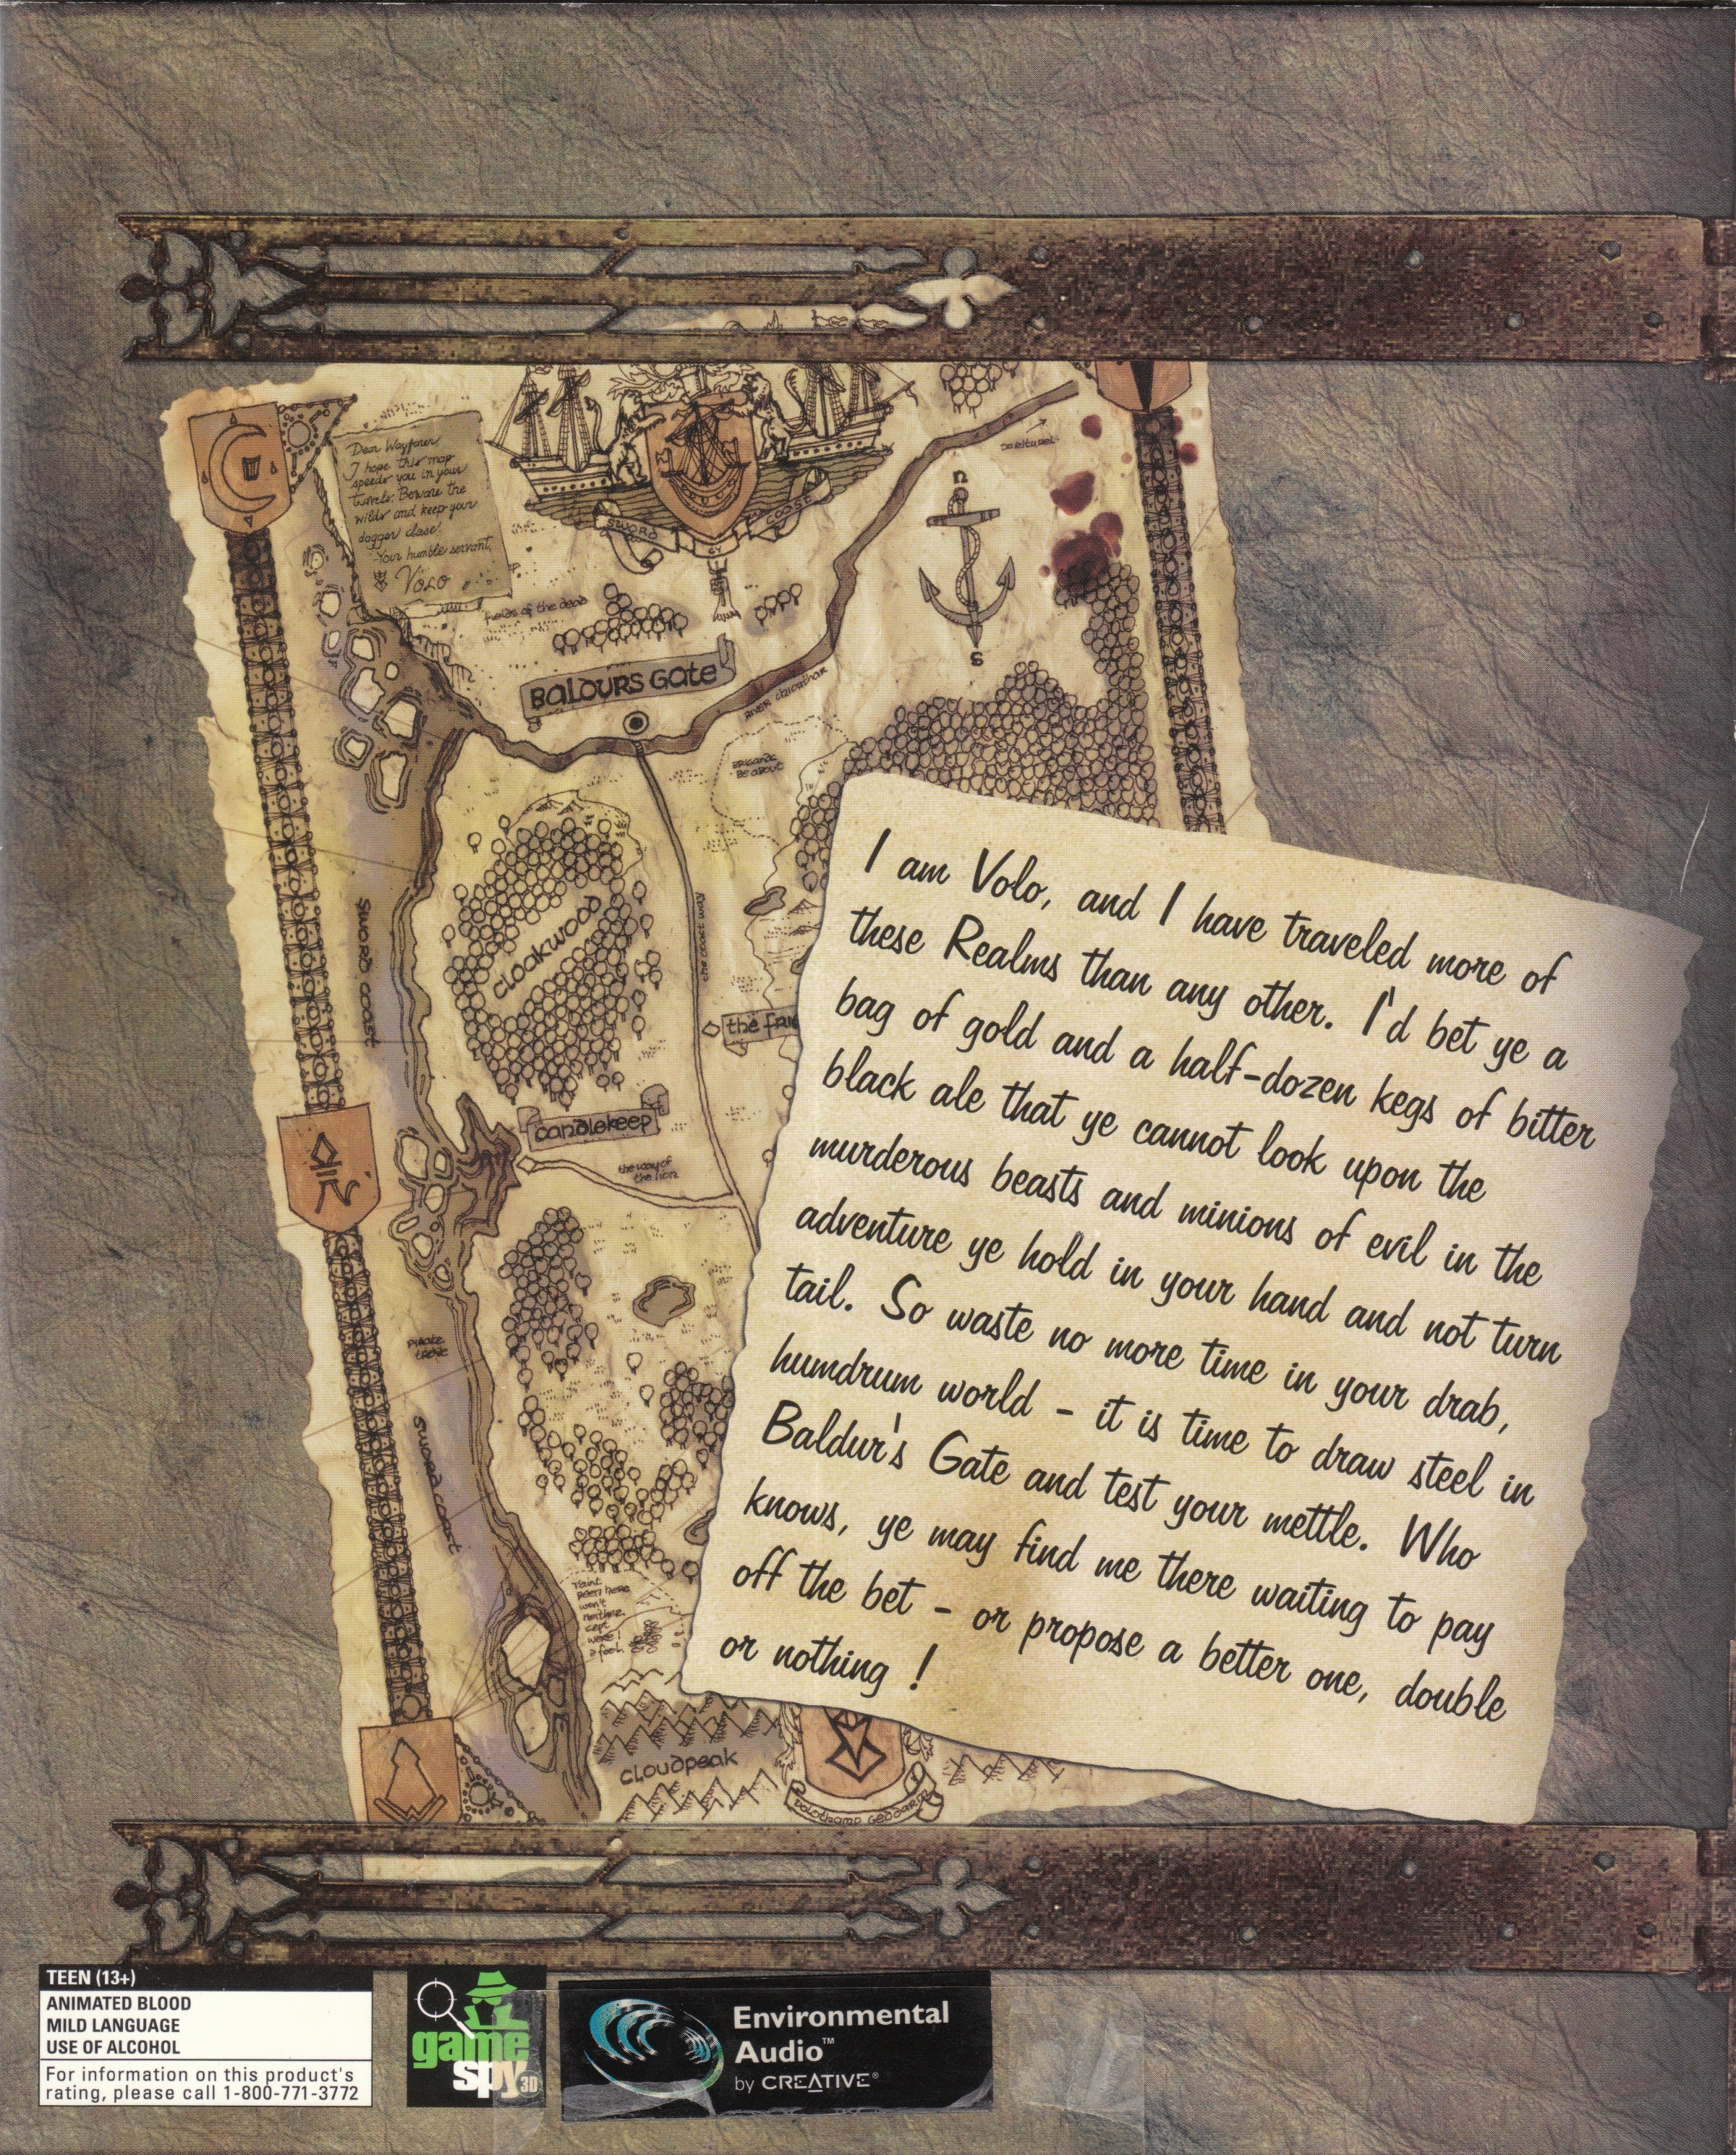 Dear Wayfarer,
I hope this map
speeds you in your
travels. Beware the
wilds and keep your
dagger close.
Your humble servant,
VOLO
SWORD
COAST
fields of the dead
BALDURS GATE
RIVER chionthar
N
S
BRIGANDS
BE ABOUT
cloakwood
SWORD COAST
the
candlekeep
the way of
the lion
PIRATE
SWORD COAST
taint
been here
won't
neither
cept
were i
a fool
cloudpeak
volothamp geddarm
I am Volo, and I have traveled more of
these Realms than any other. I'd bet ye a
bag of gold and a half-dozen kegs of bitter
black ale that ye cannot look upon the
murderous beasts and minions of evil in the
adventure ye hold in your hand and not turn
tail. So waste no more time in your drab,
humdrum world - it is time to draw steel in
Baldur's Gate and test your mettle. Who
knows, ye may find me there waiting to pay
off the bet - or propose a better one, double
or nothing !
TEEN (13+)
ANIMATED BLOOD
MILD LANGUAGE
USE OF ALCOHOL
For information on this product's
rating, please call 1-800-771-3772
game
spy3D
Environmental
Audio™
by CREATIVE®